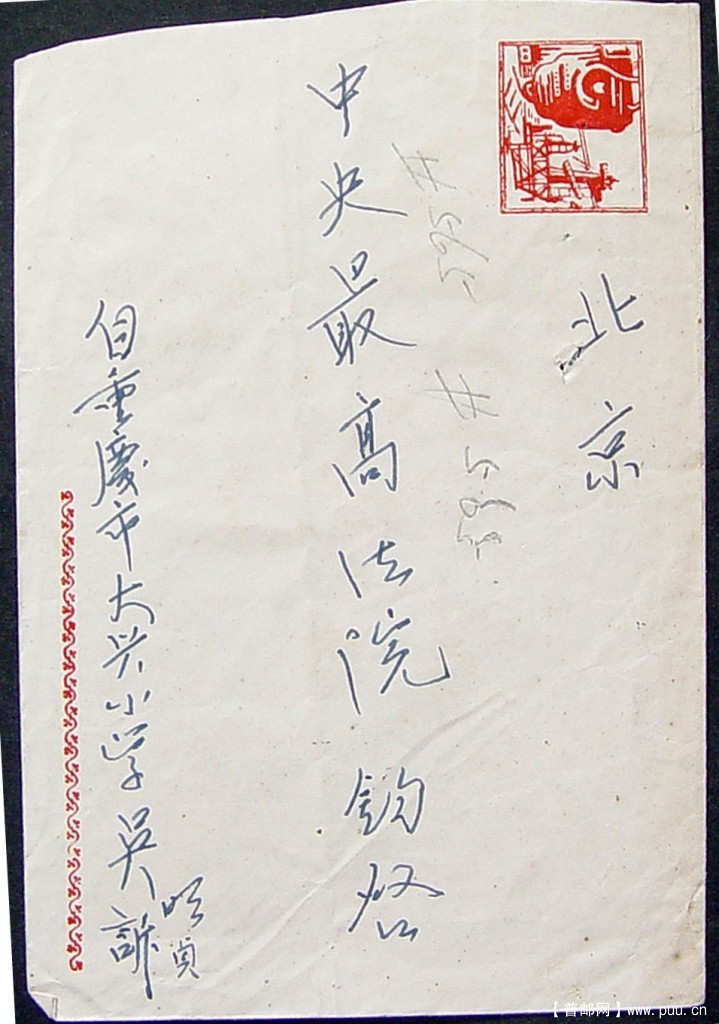 北京
#595
#5955
中央最高法院 钧啓
自重慶市大兴小学吴明貞訴
【普邮网】www.puu.cn